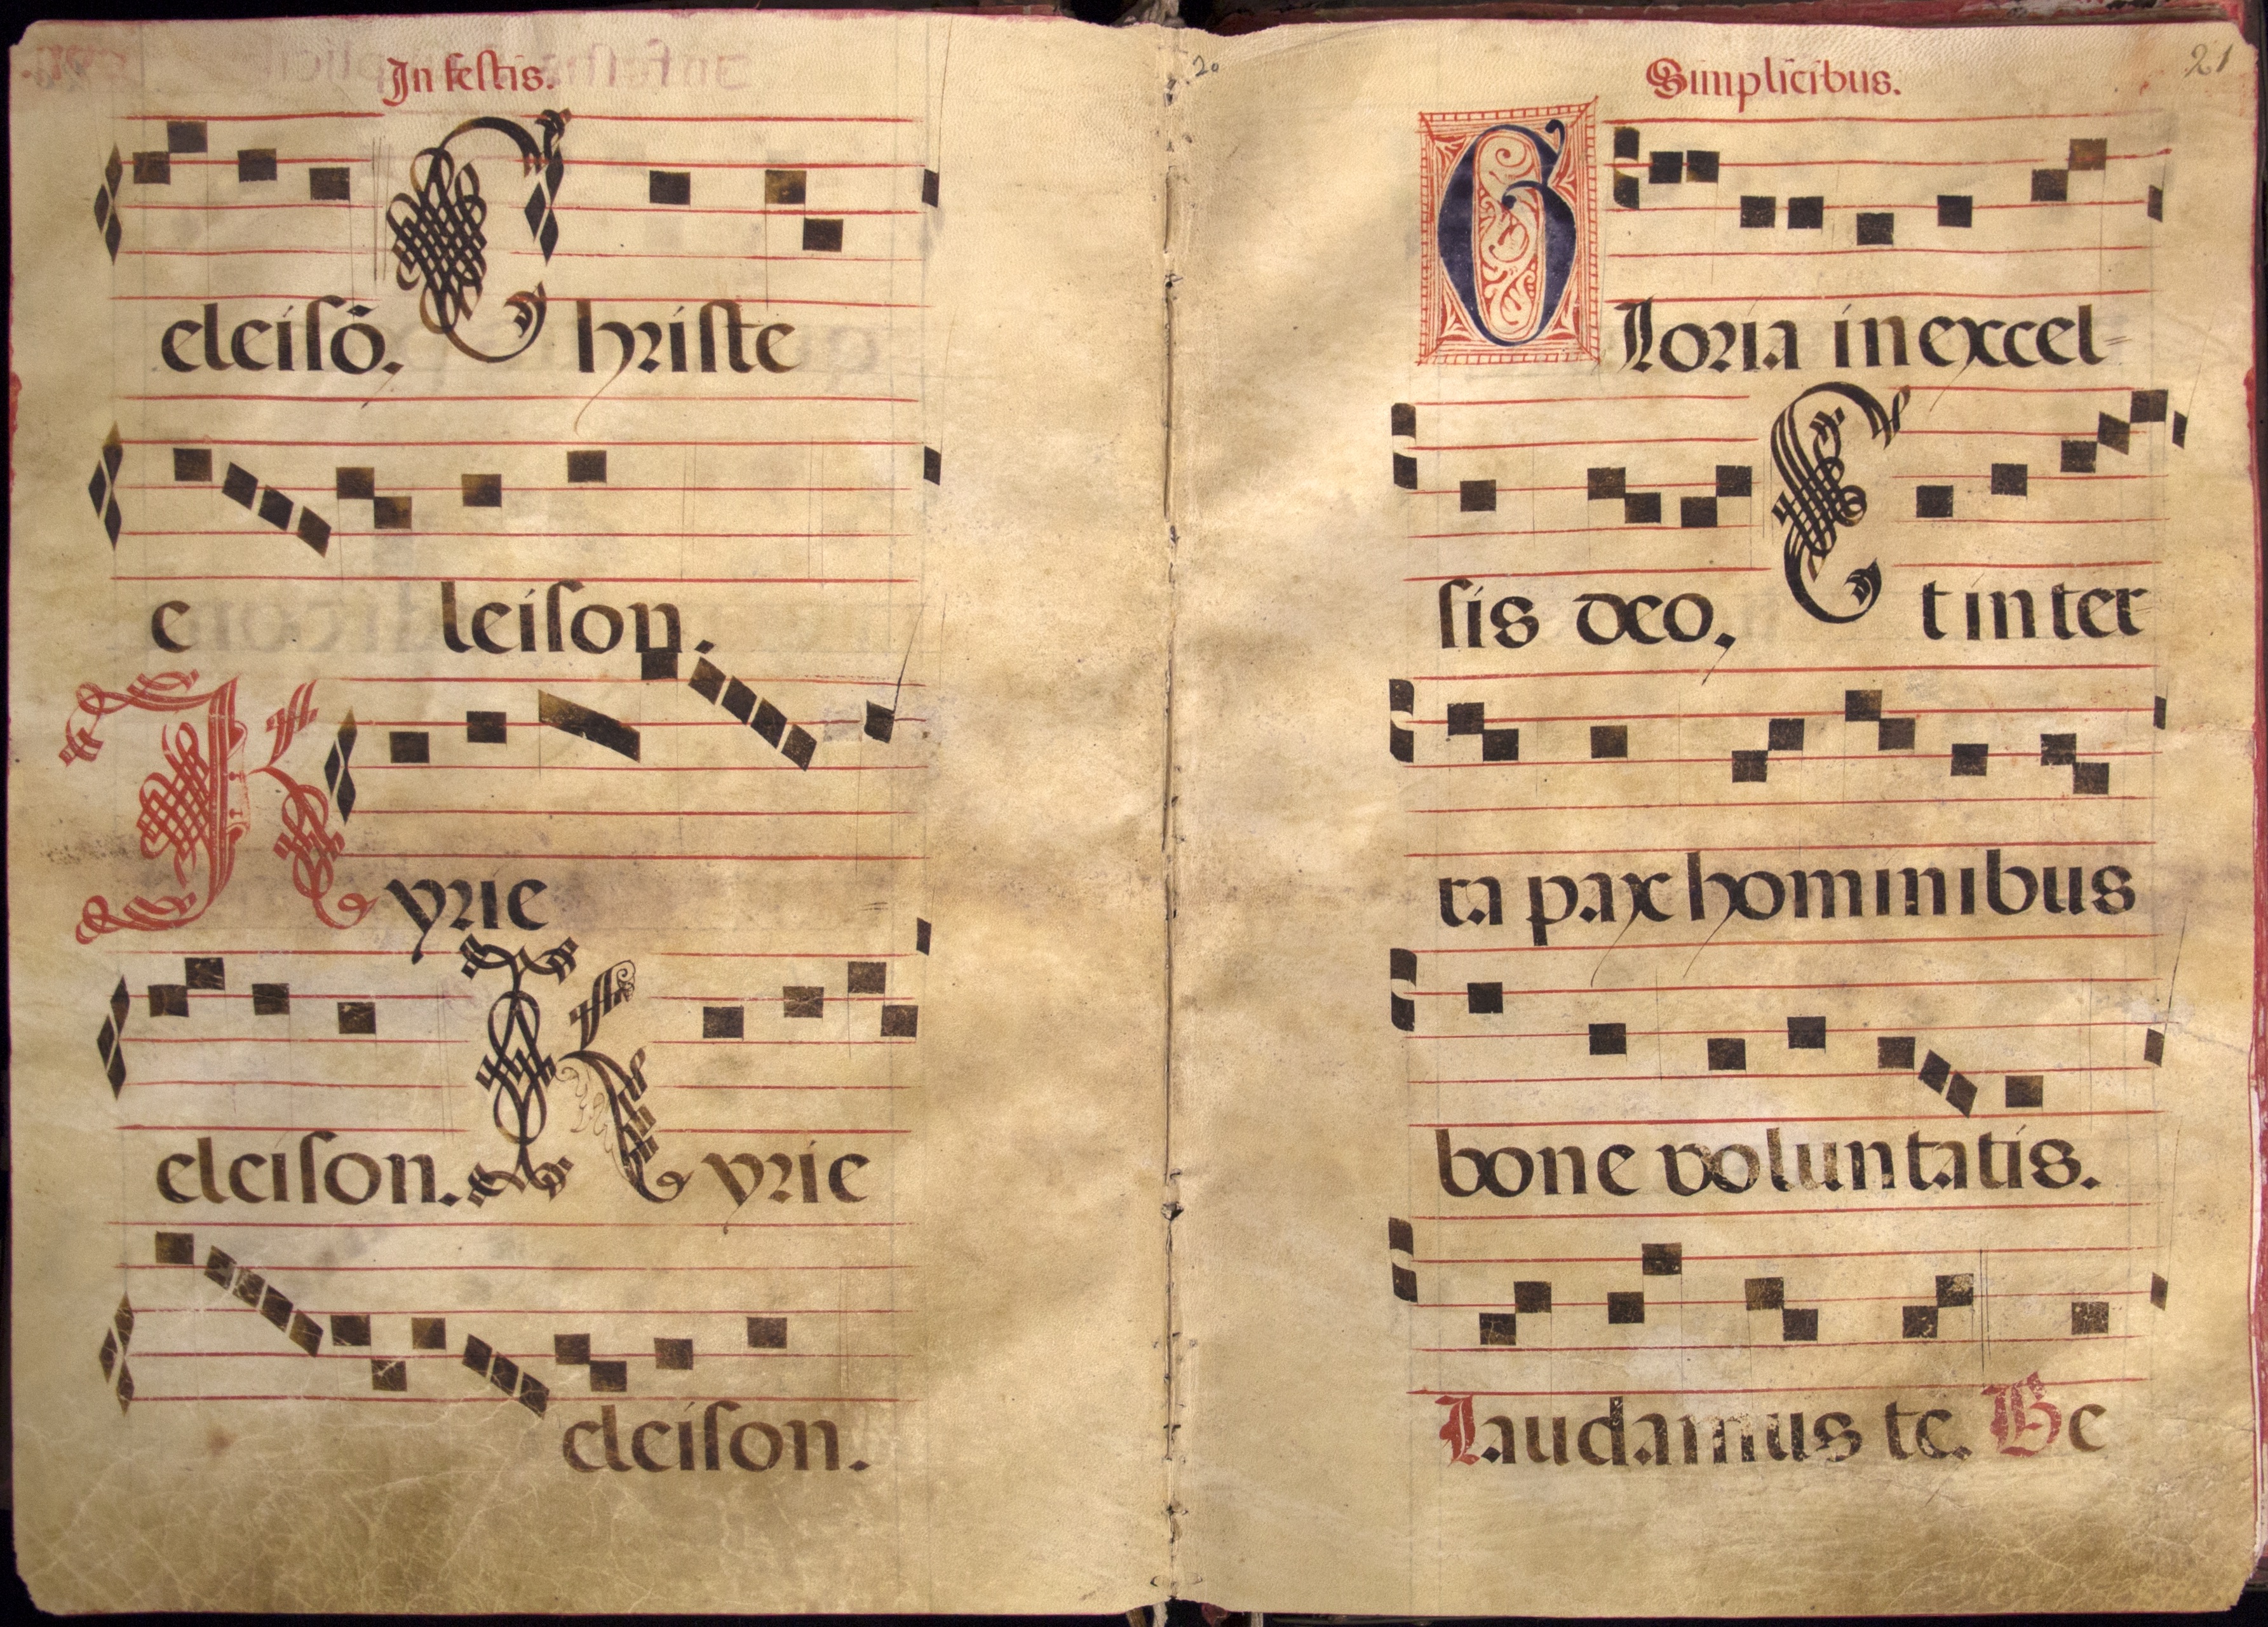 In festis.
eleiſō. Chriſte
e leiſon.
Kyrie
eleiſon. Kyrie
eleiſon.
20
21
Simplicibus.
Gloria in excel-
ſis deo. Et in ter
ra pax hominibus
bone voluntatis.
Laudamus te. Be